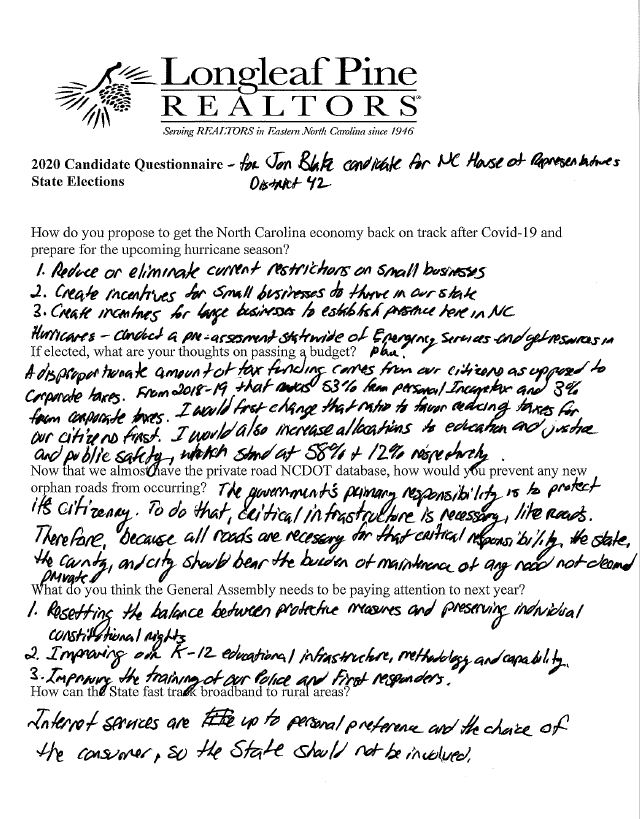 Longleaf Pine
REALTORS®
Serving REALTORS in Eastern North Carolina since 1946
2020 Candidate Questionnaire – for Jon Blake candidate for NC House of Representatives
State Elections District 42
How do you propose to get the North Carolina economy back on track after Covid-19 and
prepare for the upcoming hurricane season?
1. Reduce or eliminate current restrictions on small businesses
2. Create incentives for small businesses to thrive in our state
3. Create incentives for large businesses to establish presence here in NC
Hurricanes - conduct a pre-assesment statewide of Emergency Services and get resources in
If elected, what are your thoughts on passing a budget? place.
A disproportionate amount of tax funding comes from our citizens as opposed to
corporate taxes. From 2018-19 that was 53% from personal Income tax and 3%
from corporate taxes. I would first change that ratio to favor reducing taxes for
our citizens first. I would also increase allocations to education and justice
and public safety, which stand at 58% + 12% respectively.
Now that we almost have the private road NCDOT database, how would you prevent any new
orphan roads from occurring? The government's primary responsibility is to protect
its citizenry. To do that, critical infrastructure is necessary, like roads.
Therefore, because all roads are necessary for that critical responsibility, the state,
the county, and city should bear the burden of maintenance of any road not deemed
private
What do you think the General Assembly needs to be paying attention to next year?
1. Resetting the balance between protective measures and preserving individual
constitutional rights
2. Improving our K-12 educational infrastructure, methodology and capability.
3. Improving the training of our Police and First responders.
How can the State fast track broadband to rural areas?
Internet services are up to personal preference and the choice of
the consumer, so the State should not be involved.